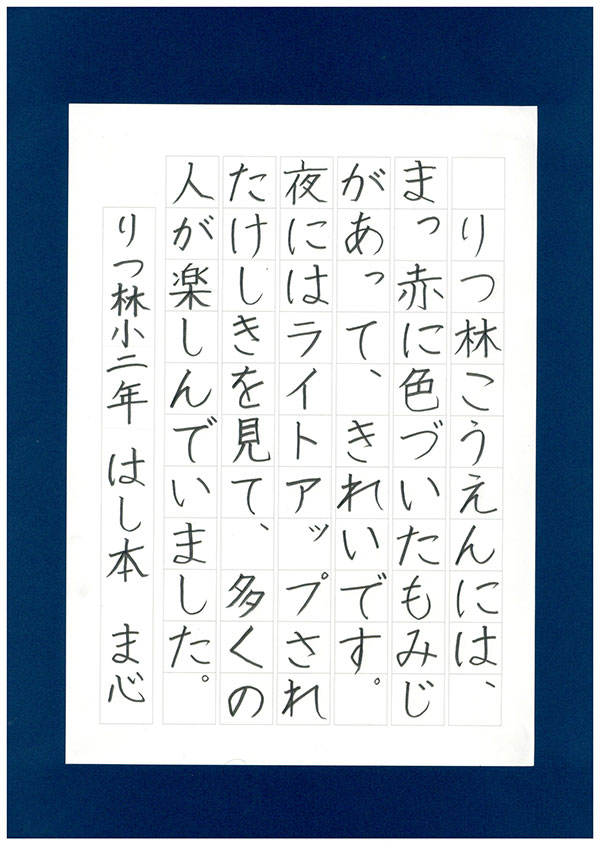 りつ林こうえんには、
まっ赤に色づいたもみじ
があって、きれいです。
夜にはライトアップされ
たけしきを見て、多くの
人が楽しんでいました。
りつ林小二年 はし本 ま心